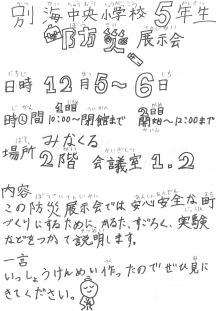 別海中央小学校 5年生
防災 展示会
日時 12月5〜6日
時間 1日目 10:00〜閉館まで 2日目 開始〜12:00まで
場所 みなくる
2階 会議室 1.2
内容
この防災展示会では安心安全な町
づくりにするためにかるた、すごろく、実験
などをつかって説明します。
一言
いっしょうけんめい作ったのでぜひ見に
きてください。